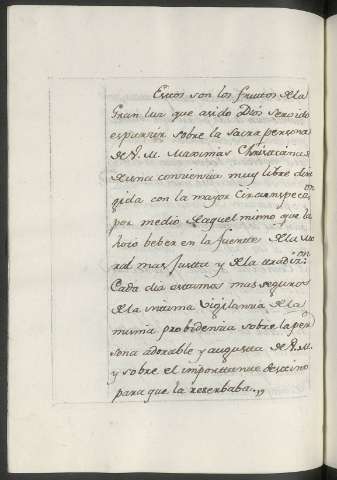 Estos son los frutos de la
Gran luz que asido Dios servido
esparsir sobre la sacra persona
de V. M. Maximas Christianas
de una conciencia muy libre diri
gida con la mayor circunspeccion
por medio de aquel mismo que la
hizo beber en la fuente de la mo
ral mas justa y de la tradicion.
Cada dia estamos mas seguros
de la intima vigilancia de la
misma probidencia sobre la per
sona adorable y augusta de V. M.
y sobre el importante destino
para que la reserbaba.,,